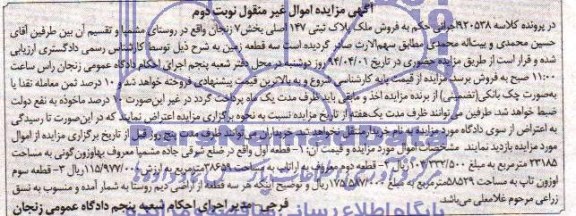 آگهی مزایده اموال غیر منقول نوبت دوم
در پرونده کلاسه ۹۲۰۵۳۸ اجرایی حکم به فروش ملک پلاک ثبتی ۱۴۷ اصلی بخش ۷ زنجان واقع در روستای مشمپا و تقسیم آن بین طرفین آقای
حسین محمدی و بیت‌اله محمدی مطابق سهم‌الارث صادر گردیده است سه قطعه زمین به شرح ذیل توسط کارشناس رسمی دادگستری ارزیابی
شده و قرار است از طریق مزایده حضوری در تاریخ ۹۴/۰۴/۰۱ روز دوشنبه در محل دفتر شعبه پنجم اجرای احکام دادگاه عمومی زنجان راس ساعت
۱۱:۰۰ صبح به فروش برسد مزایده از قیمت پایه کارشناسی شروع و به بالاترین قیمت پیشنهادی فروخته خواهد شد ۱۰ درصد ثمن معامله نقدا یا
به‌صورت چک بانکی(تضمینی) از برنده مزایده اخذ و مابقی باید ظرف مدت یک ماه پرداخت گردد در غیر این‌صورت ۱۰ درصد ماخوذه به نفع دولت
ضبط خواهد شد. طرفین می‌توانند ظرف مدت یک‌هفته از تاریخ مزایده نسبت به نحوه برگزاری مزایده اعتراض نمایند که در این‌صورت تا رسیدگی
به اعتراض از سوی دادگاه مورد مزایده به نام خریدار منتقل نخواهد شد. خریداران می‌توانند ظرف مدت پنج روز قبل از تاریخ برگزاری مزایده از اموال
مورد مزایده بازدید نمایند. مشخصات اموال مورد مزایده و قیمت آن: ۱- قطعه اول واقع در ضلع شرقی جاده مشمپا معروف بهاوزون‌گونی به مساحت
۲۳۱۸۵ مترمربع به مبلغ ریال ۲- قطعه دوم معروف به اراتاپی به مساحت ۳۸۶۵۹ مترمربع به ارزش ۱۱۵/۹۷۷/۰۰۰ ریال ۳- قطعه سوم
اوزون تاپ به مساحت ۵۸۵۲۹ مترمربع به مبلغ ۱۷۵/۵۸۷/۰۰۰ ریال و توضیح اینکه هر سه قطعه از اراضی دیم روستا به شمار آمده و منسوب به نسق
زراعی مرحوم غلامعلی می‌باشد. فرجی مدیر اجرای احکام شعبه پنجم دادگاه عمومی زنجان